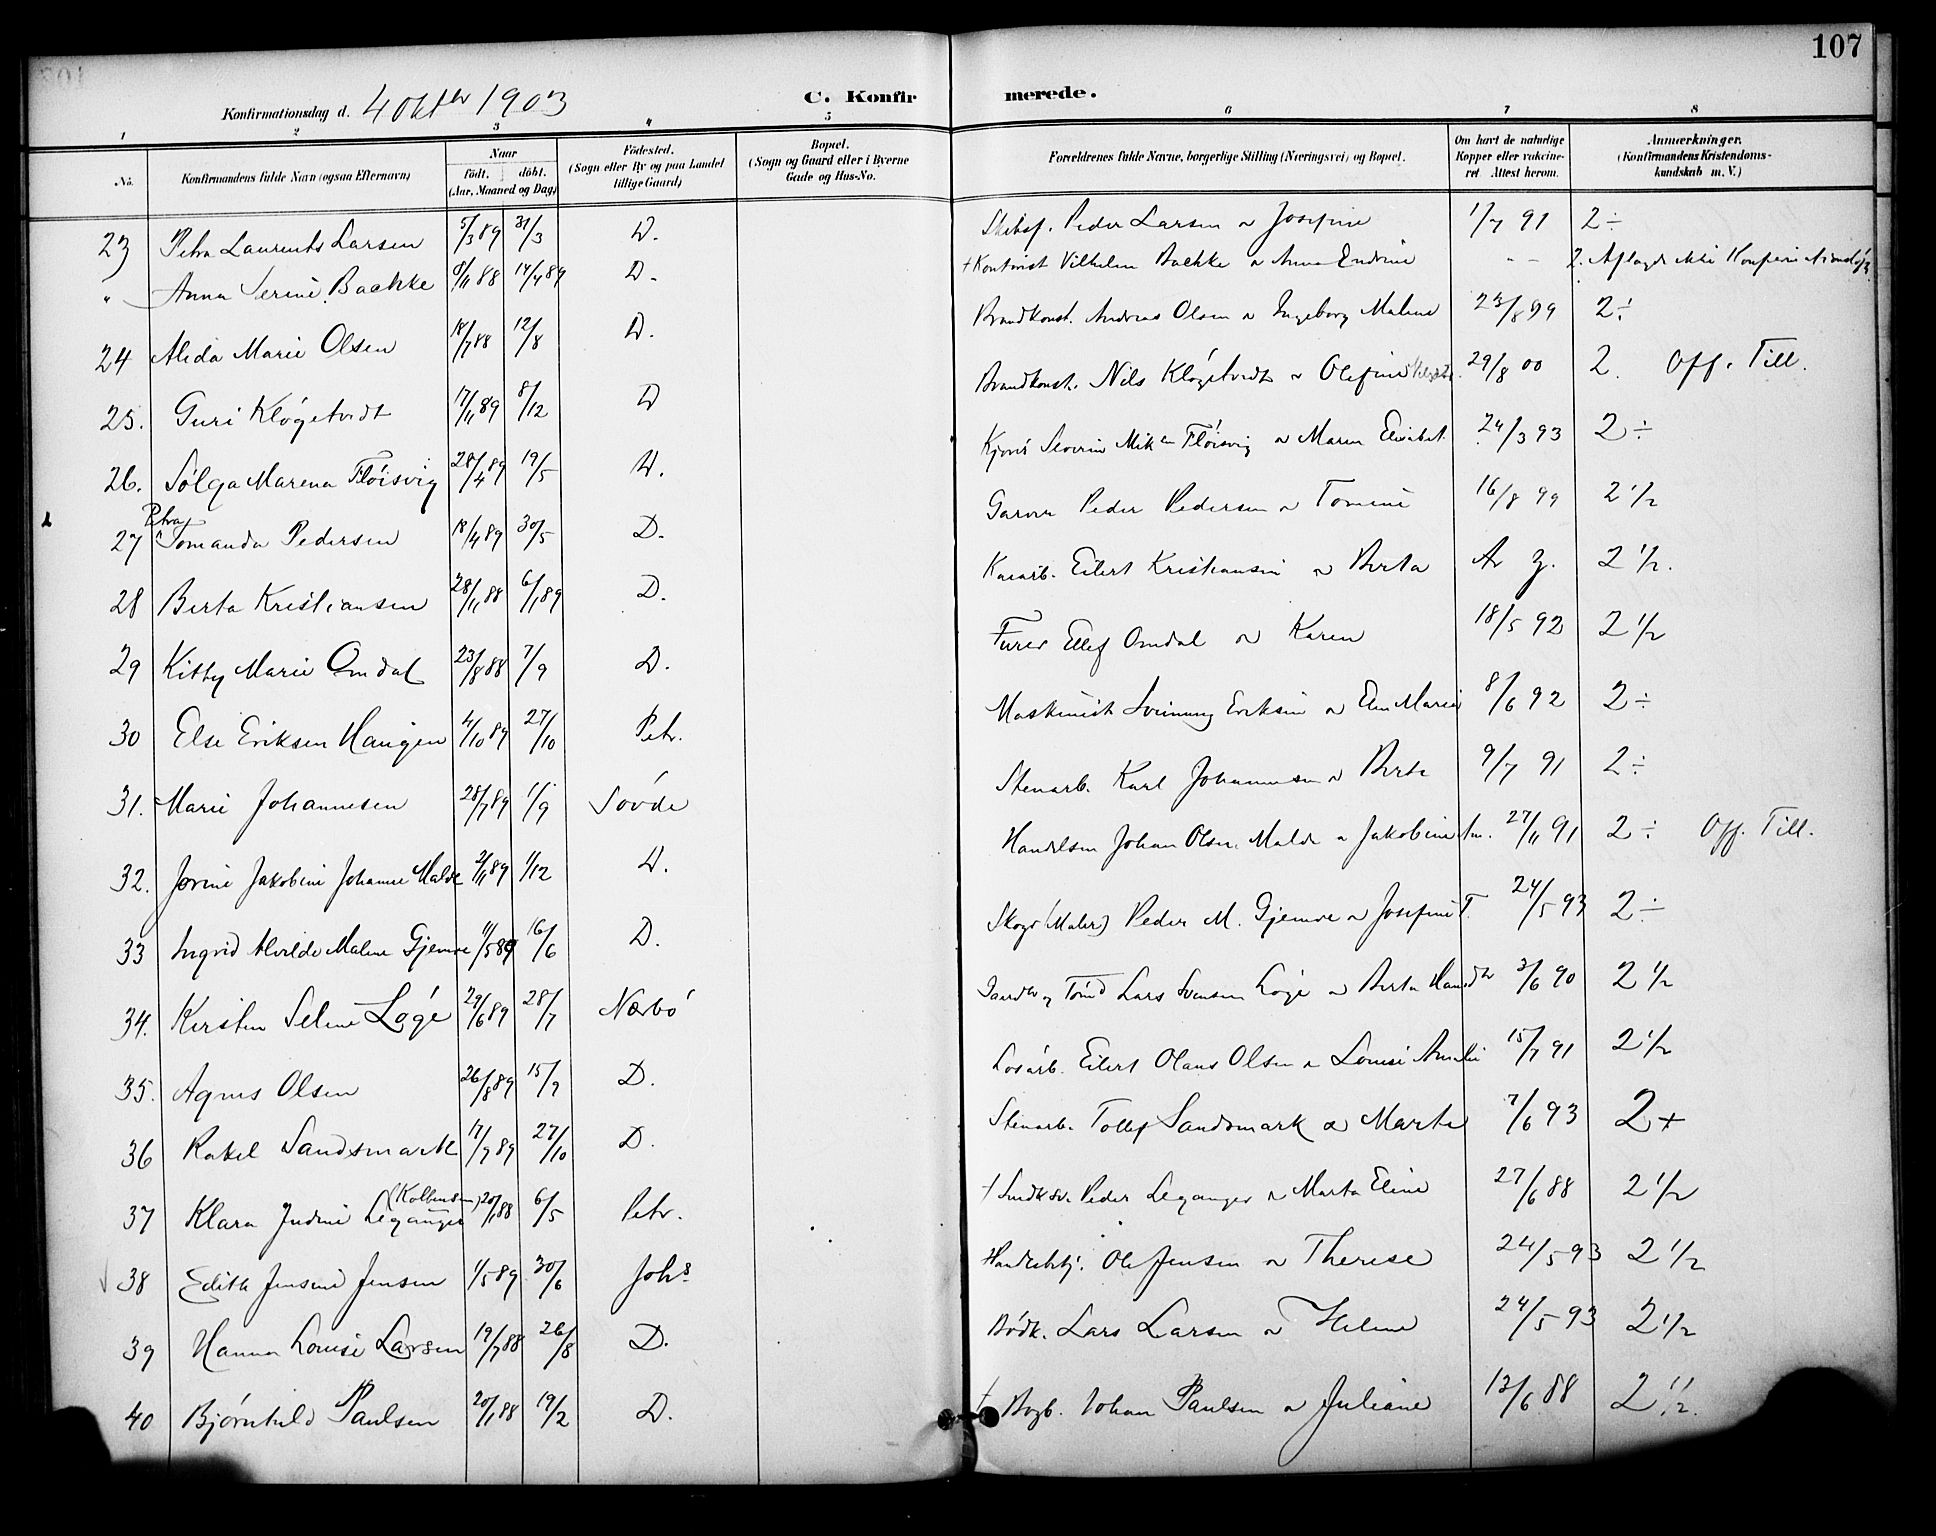 107
Konfirmationsdag d. 4 Oktbr 1903
C. Konfirmerede.
1 2 3 4 5 6 7 8
No. Konfirmandens fulde Navn (ogsaa Efternavn) Naar födt. döbt. (Aar, Maaned og Dag) Födested. (Sogn eller By og paa Landet tillige Gaard) Bopæl. (Sogn og Gaard eller i Byerne Gade og Hus-No. Forældrenes fulde Navne, borgerlige Stilling (Næringsvei) og Bopæl. Om havt de naturlige Kopper eller vakcineret. Attest herom. Anmærkninger. (Konfirmandens Kristendomskundskab m. V.)
23 Petra Laurents Larsen 5/3 89 31/3 D. Peder Larsen & Josefine 1/7 91 2÷
" Anna Serine Baekke 8/11 88 14/4 89 D. + Kontorist Vilhelm Baekke & Anna Endrine - - 2.
24 Alida Marie Olsen 18/7 88 12/8 D. Brandkonst. Andreas Olsen & Ingeborg Malene 23/8 99 2÷
25. Guri Klögetvedt 17/11 89 8/12 D Brandkonst. Nils Klögetvedt & Olefine 29/8 00 2. Off. Till.
26. Sölga Marena Flöisvig 28/4 89 19/5 D. Severin Mik Flöisvig & Maren Elisabet 24/3 93 2÷
27 Petra Tomanda Pedersen 18/4 89 30/5 D. Garver Peder Pedersen & Tomine 16/8 99 2 1/2
28 Berta Kristiansen 28/11 88 6/1 89 D. Eilert Kristiansen & Berta Ar 3. 2 1/2.
29 Kitty Marie Omdal 23/8 88 7/9 D. Furer Ellef Omdal & Karen 18/5 92 2 1/2
30 Else Eriksen Haugen 4/10 89 27/10 Petr. Maskinist Sveinung Eriksen & Marie 8/6 92 2÷
31. Marie Johannesen 28/7 89 1/9 Sövde Stenarb. Karl Johannesen & Berte 9/7 91 2÷
32. Jorine Jakobine Johanne Malde 2/11 89 1/12 D. Handelsm Johan Olsen Malde & Jakobine 27/11 91 2÷ Off. Till.
33 Ingrid Alvilde Malene Gjemre 11/5 89 16/6 D. (Maler) Peder M. Gjemre & Josefine T. 24/5 93 2÷
34. Kirsten Seline Löge 29/6 89 28/7 Nærbö Lars Svensen Löge & Berta 3/6 90 2 1/2
35. Agnes Olsen 26/8 89 15/9 D. Lösarb. Eilert Olaus Olsen & Louise Amalie 15/7 91 2 1/2
36 Rakel Sandsmark 17/9 89 27/10 D. Stenarb. Tollef Sandsmark & Marte 7/6 93 2+
37 Klara Judine Leganger (Kolbensen) 20/1 88 6/5 Petr. + Peder Leganger & Marta Eline 27/6 88 2 1/2
38 Edith Jensine Jensen 1/5 89 30/6 Johs Ole Jensen & Therese 24/5 93 2 1/2
39 Hanna Louise Larsen 19/7 88 26/8 D. Bödk. Lars Larsen & Helene 24/5 93 2 1/2
40 Bjørnhild Paulsen 20/1 88 19/2 D. + Bogb. Johan Paulsen & Juliane 13/6 88 2 1/2.